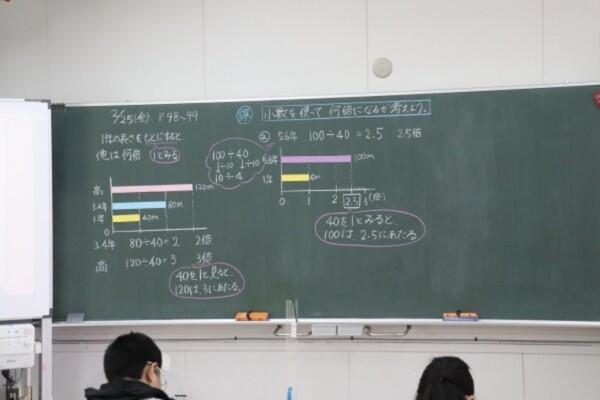 2/25(金) P98~99
1年の長さをもとにすると
他は何倍 1とみる
高 120m
3.4年 80m
1年 40m
0
3.4年 80÷40=2 2倍
高 120÷40=3 3倍
40を1と見ると、
120は、3にあたる。
小数を使って何倍になるか考えよう。
5.6年 100÷40=2.5 2.5倍
100÷40
↓÷10 ↓÷10
10÷4
5.6年 100m
1年
0 1 2 2.5 3 (倍)
40を1とみると、
100は、2.5にあたる